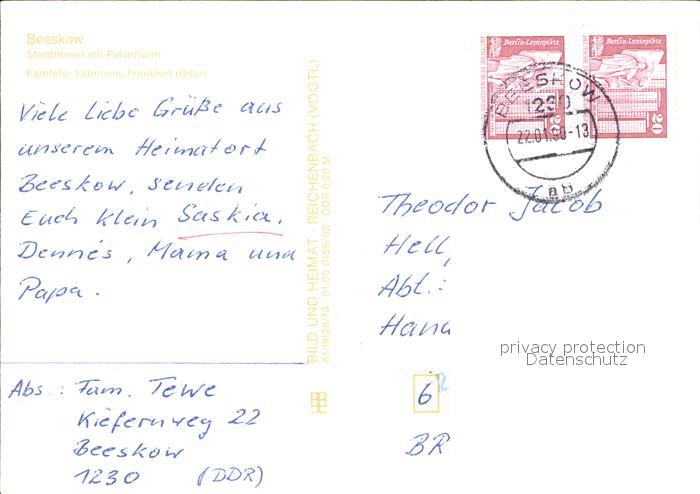 Beeskow
Stadtmauer mit Pulverturm
Farbfoto: Lehmann, Frankfurt (Oder)
Viele liebe Grüße aus
unserem Heimatort
Beeskow, senden
Euch klein Saskia,
Dennés, Mama und
Papa.
Abs.: Fam. Tewe
Kiefernweg 22
Beeskow
1230 (DDR)
BILD UND HEIMAT · REICHENBACH (VOGTL)
A1/III/26/13 · 01 05 0156/02 · DDR 0,20 M
Berlin-Leninplatz
20
Berlin-Leninplatz
20
BEESKOW
1230
22.01.90-13
ab
Theodor Jacob
Hell,
Abt.:
Hana
6
BR
privacy protection
Datenschutz